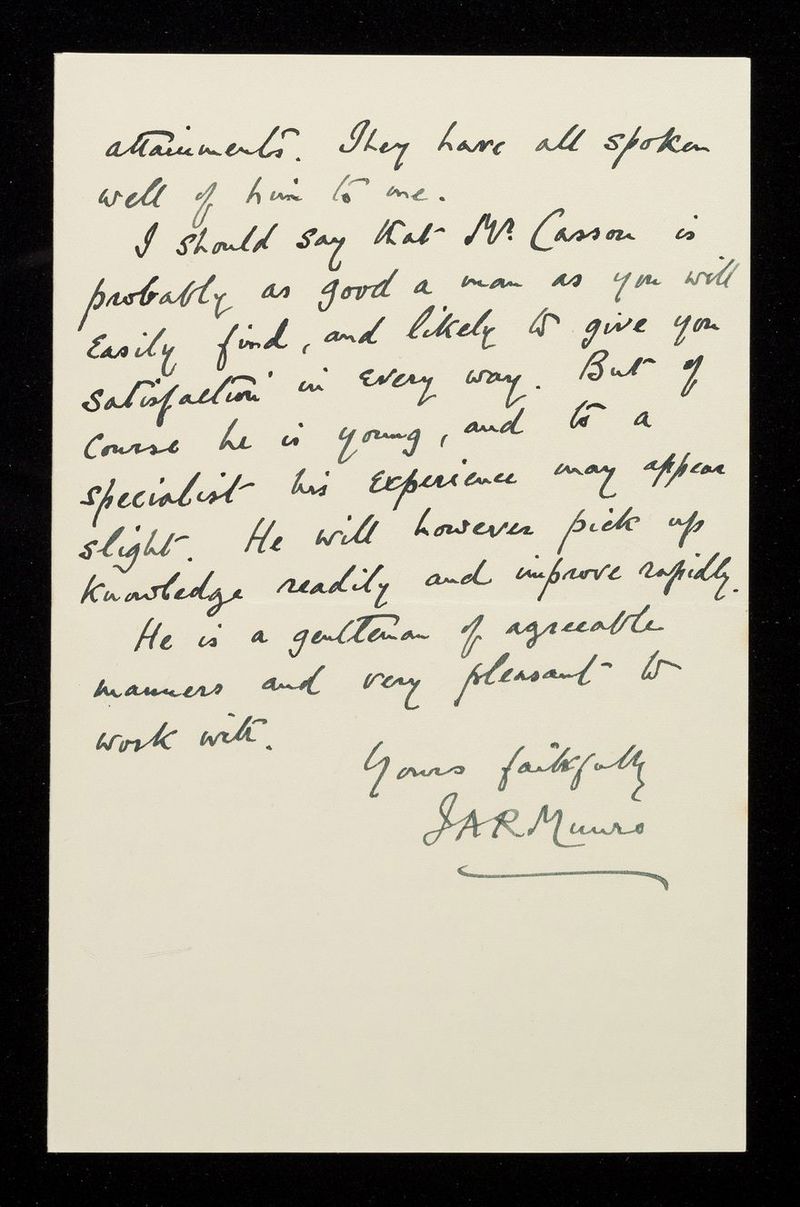 attainments. They have all spoken
well of him to me.
I should say that Mr. Casson is
probably as good a man as you will
easily find, and likely to give you
satisfaction in every way. But of
course he is young, and to a
specialist his experience may appear
slight. He will however pick up
knowledge readily and improve rapidly.
He is a gentleman of agreeable
manners and very pleasant to
work with.
Yours faithfully
JAR Munro